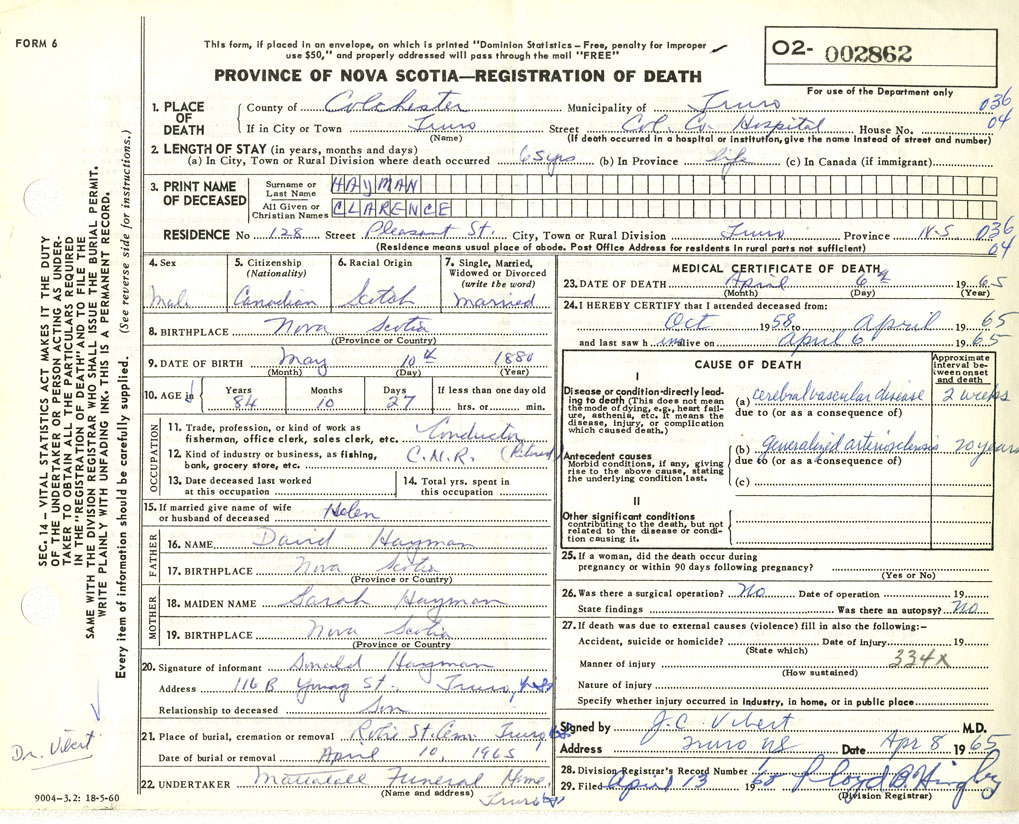 FORM 6
This form, if placed in an envelope, on which is printed "Dominion Statistics—Free, penalty for improper
use $50," and properly addressed will pass through the mail "FREE"
O2- 002862
For use of the Department only
PROVINCE OF NOVA SCOTIA—REGISTRATION OF DEATH
1. PLACE OF DEATH
County of Colchester Municipality of Truro 036
If in City or Town Truro (Name) Street Col. Co. Hospital House No. 04
(If death occurred in a hospital or institution, give the name instead of street and number)
2. LENGTH OF STAY (in years, months and days)
(a) In City, Town or Rural Division where death occurred 65 yrs (b) In Province life (c) In Canada (if immigrant)
3. PRINT NAME OF DECEASED
Surname or Last Name HAYMAN
All Given or Christian Names CLARENCE
RESIDENCE No 128 Street Pleasant St. City, Town or Rural Division Truro Province N.S 036
(Residence means usual place of abode. Post Office Address for residents in rural parts not sufficient) 04
4. Sex Male
5. Citizenship (Nationality) Canadian
6. Racial Origin Scotch
7. Single, Married, Widowed or Divorced (write the word) Married
8. BIRTHPLACE Nova Scotia
(Province or Country)
9. DATE OF BIRTH May 10th 1880
(Month) (Day) (Year)
10. AGE in Years 84 Months 10 Days 27 If less than one day old hrs. or min.
OCCUPATION
11. Trade, profession, or kind of work as
fisherman, office clerk, sales clerk, etc. Conductor
12. Kind of industry or business, as fishing,
bank, grocery store, etc. C.N.R. (Retired)
13. Date deceased last worked
at this occupation
14. Total yrs. spent in
this occupation
15. If married give name of wife
or husband of deceased Helen
FATHER
16. NAME David Hayman
17. BIRTHPLACE Nova Scotia
(Province or Country)
MOTHER
18. MAIDEN NAME Sarah Hayman
19. BIRTHPLACE Nova Scotia
(Province or Country
20. Signature of informant Donald Hayman
Address 116 B Young St. Truro,
Relationship to deceased Son
21. Place of burial, cremation or removal Robie St. Cem Truro
Date of burial or removal April 10, 1965
22. UNDERTAKER Mattatall Funeral Home,
(Name and address) Truro
MEDICAL CERTIFICATE OF DEATH
23. DATE OF DEATH April 6th 1965
(Month) (Day) (Year)
24. I HEREBY CERTIFY that I attended deceased from:
Oct 1958 to April 1965
and last saw h im alive on April 6 1965
CAUSE OF DEATH
Approximate interval between onset and death
I
Disease or condition directly leading to death (This does not mean the mode of dying, e.g., heart failure, asthenia, etc. It means the disease, injury, or complication which caused death.)
(a) cerebral vascular disease 2 weeks
due to (or as a consequence of)
Antecedent causes
Morbid conditions, if any, giving rise to the above cause, stating the underlying condition last.
(b) generalized arteriosclerosis 20 years
due to (or as a consequence of)
(c)
II
Other significant conditions
contributing to the death, but not related to the disease or condition causing it.
25. If a woman, did the death occur during
pregnancy or within 90 days following pregnancy?
(Yes or No)
26. Was there a surgical operation? No Date of operation 19
State findings Was there an autopsy? No
27. If death was due to external causes (violence) fill in also the following:—
Accident, suicide or homicide? Date of injury 19
(State which)
Manner of injury 334X
(How sustained)
Nature of injury
Specify whether injury occurred in industry, in home, or in public place
Signed by J.C. Vibert M.D.
Address Truro NS Date Apr 8 1965
28. Division Registrar's Record Number
29. Filed April 13 19 Lloyd B.
(Division Registrar)
SEC. 14—VITAL STATISTICS ACT MAKES IT THE DUTY
OF THE UNDERTAKER OR PERSON ACTING AS UNDER-
TAKER TO OBTAIN ALL THE PARTICULARS REQUIRED
IN THE "REGISTRATION OF DEATH" AND TO FILE THE
SAME WITH THE DIVISION REGISTRAR WHO SHALL ISSUE THE BURIAL PERMIT.
WRITE PLAINLY WITH UNFADING INK. THIS IS A PERMANENT RECORD.
Every item of information should be carefully supplied. (See reverse side for instructions.)
Dr. Vibert
9004—3.2: 18-5-60